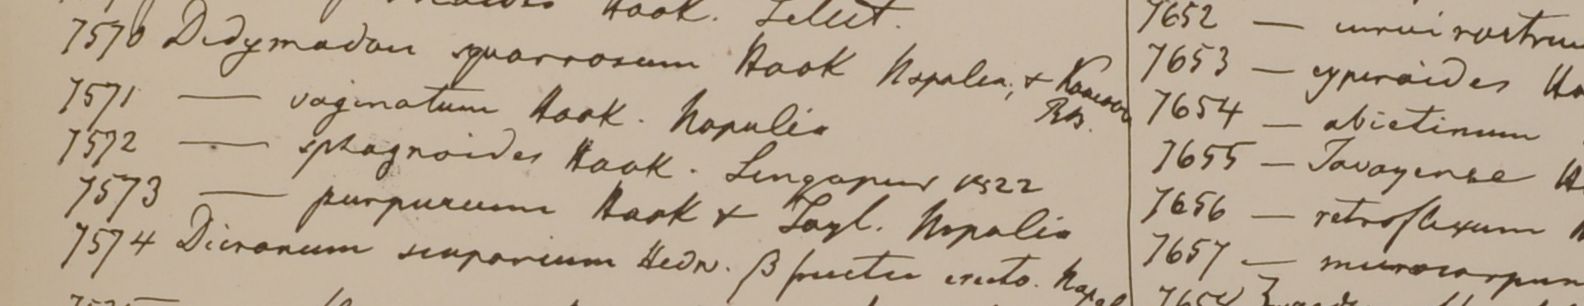 Hook. Silhet.
7570 Didymodon squarrosum Hook Napalia, & Kamaon
RB.
7571 — vaginatum Hook. Napalia
7572 — sphagnoides Hook. Singapur 1822
7573 — purpureum Hook & Tayl. Napalia
7574 Dicranum scoparium Hedw. β fructu erecto. Napal
7652 — curvirostrum
7653 — cyperoides Ho
7654 — abietinum
7655 — Tavoyense H
7656 — retroflexum H
7657 — microcarpum